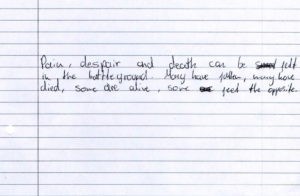 Pain, despair and death can be felt
in the battleground. Many have fallen, many have
died, some are alive, some feel the opposite.